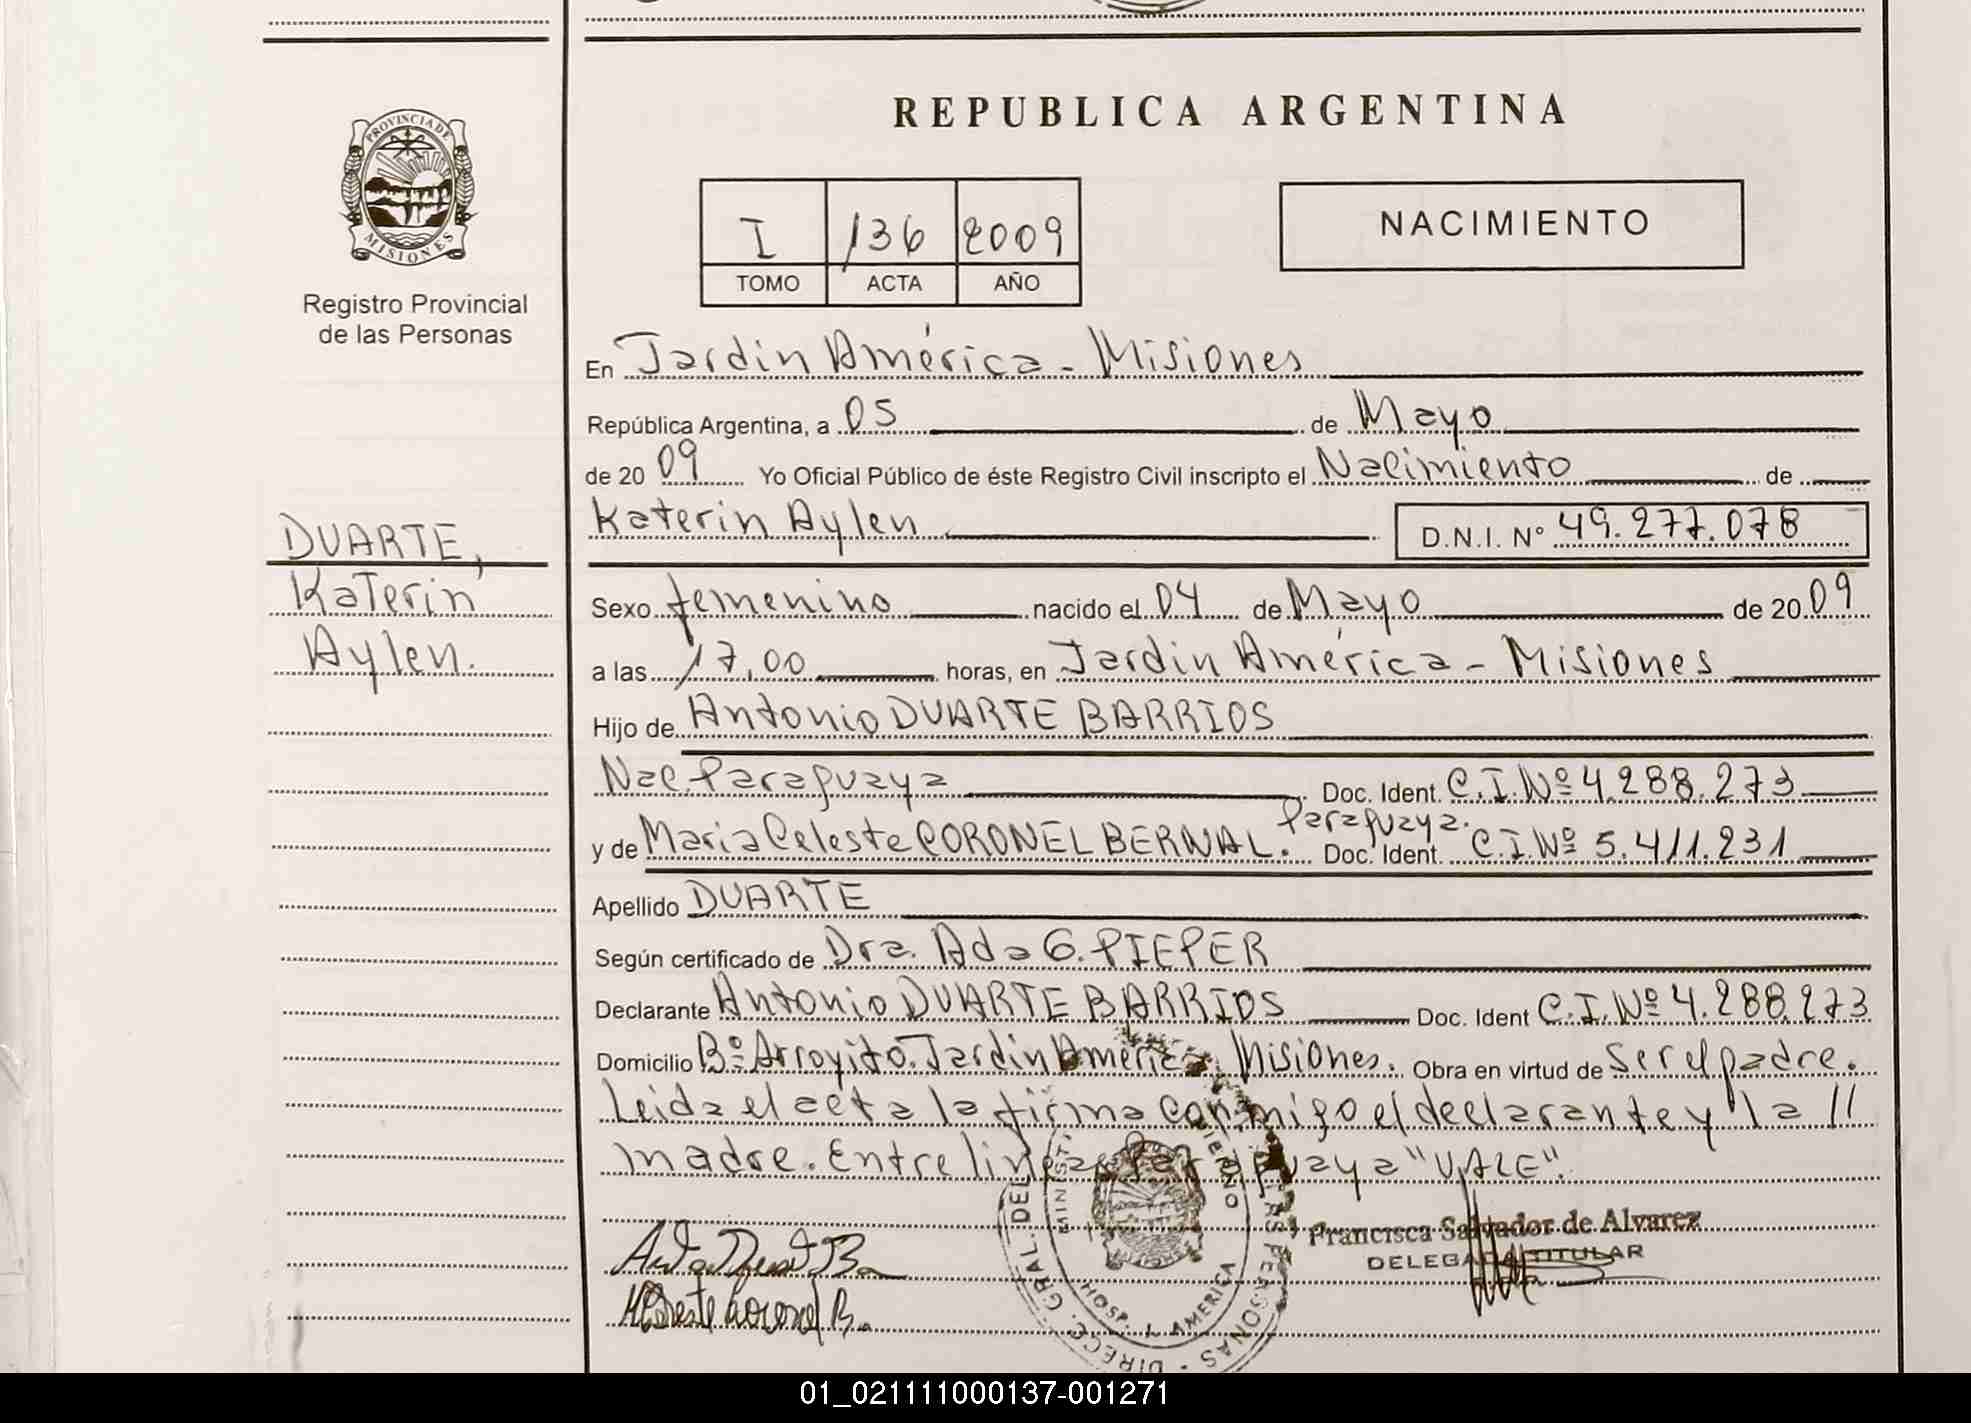 REPUBLICA ARGENTINA
PROVINCIA DE
MISIONES
Registro Provincial
de las Personas
I 136 2009
TOMO ACTA AÑO
NACIMIENTO
En Jardín América - Misiones
República Argentina, a 05 de Mayo
de 2009 Yo Oficial Público de éste Registro Civil inscripto el Nacimiento de
Katerin Aylen D.N.I. Nº 49.277.078
DUARTE,
Katerin
Aylen.
Sexo femenino nacido el 04 de Mayo de 2009
a las 17,00 horas, en Jardín América - Misiones
Hijo de Antonio DUARTE BARRIOS
Nac. Paraguaya Doc. Ident. C.I.Nº 4.288.273
Paraguaya.
y de Maria Celeste CORONEL BERNAL. Doc. Ident. C.I.Nº 5.411.231
Apellido DUARTE
Según certificado de Dra. Ada G. PIEPER
Declarante Antonio DUARTE BARRIOS Doc. Ident C.I.Nº 4.288.273
Domicilio Bº Arroyito. Jardín América. Misiones. Obra en virtud de Ser el padre.
Leida el acta la firma conmigo el declarante y la //
madre. Entre lineas Paraguaya "VALE".
Francisca Salvador de Alvarez
DELEGADA TITULAR
HOSP. J. AMERICA
01_021111000137-001271